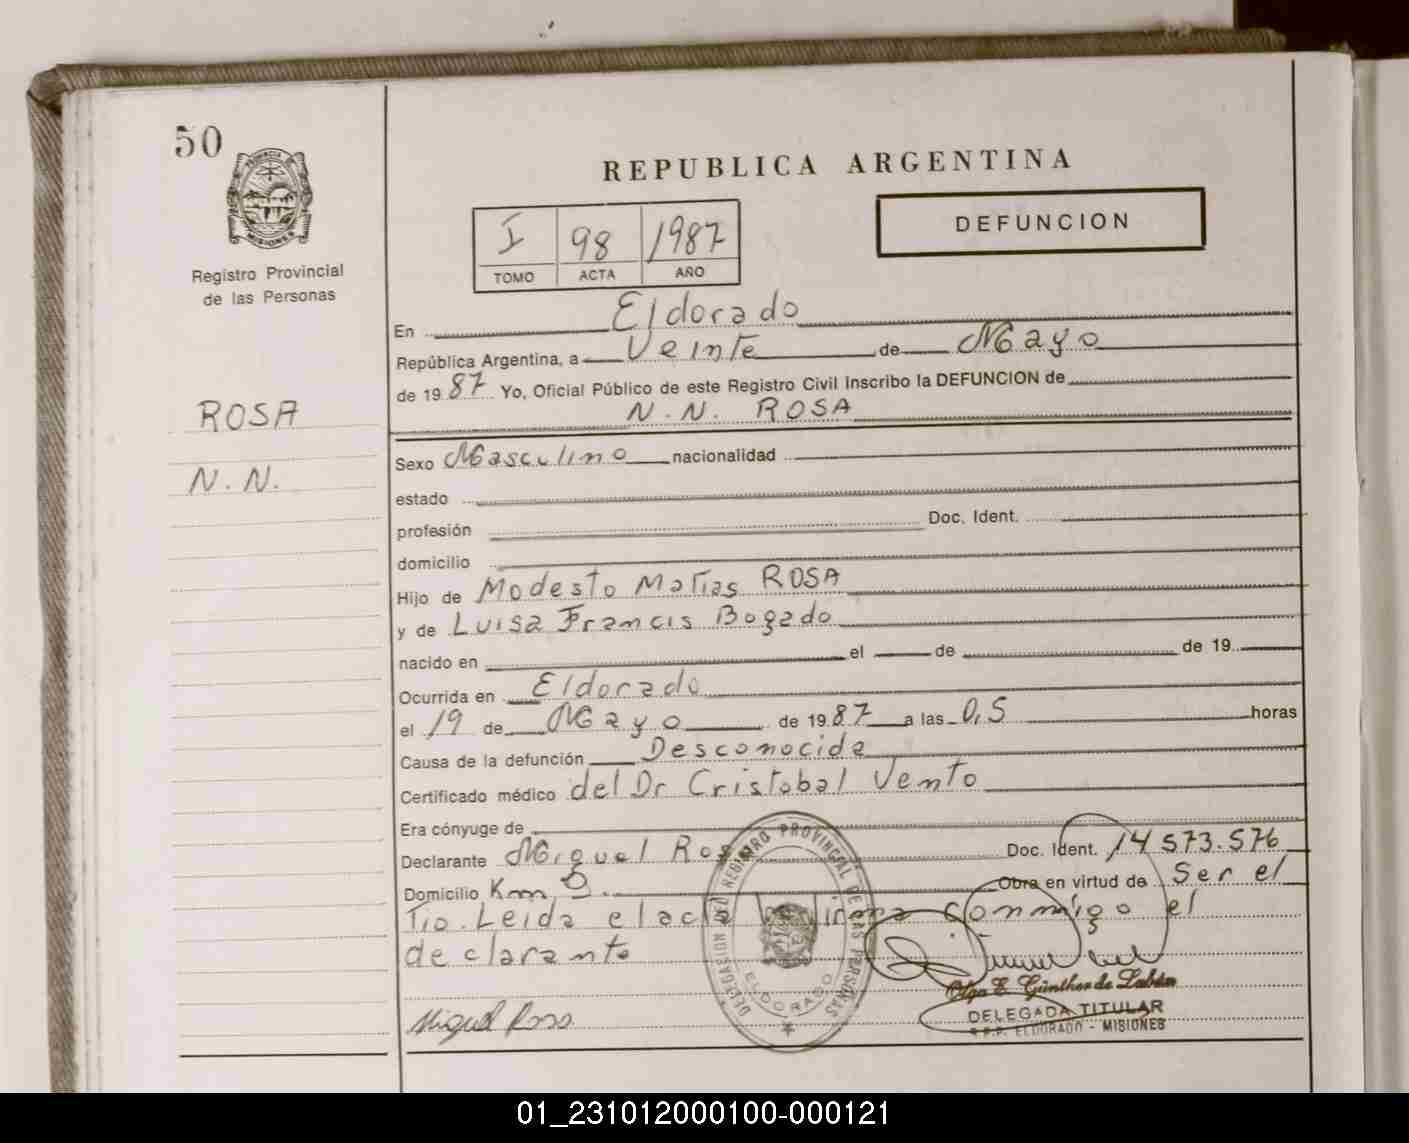 50
PROVINCIA DE
MISIONES
Registro Provincial
de las Personas
ROSA
N. N.
REPUBLICA ARGENTINA
I 98 1987
TOMO ACTA AÑO
DEFUNCION
En Eldorado
República Argentina, a Veinte de Mayo
de 19 87 Yo, Oficial Público de este Registro Civil Inscribo la DEFUNCION de
N. N. ROSA
Sexo Masculino nacionalidad
estado
profesión Doc. Ident.
domicilio
Hijo de Modesto Matias ROSA
y de Luisa Francis Bogado
nacido en el de de 19
Ocurrida en Eldorado
el 19 de Mayo de 19 87 a las 0,5 horas
Causa de la defunción Desconocida
Certificado médico del Dr Cristobal Vento
Era cónyuge de
Declarante Miguel Rosa Doc. Ident. 14 573.576
Domicilio Km 9. Obra en virtud de Ser el
Tio. Leida el acta firma conmigo el
declarante
Miguel Rosa
REGISTRO PROVINCIAL DE LAS PERSONAS
ELDORADO
Olga E. Günther de
DELEGADA TITULAR
R.P.P. ELDORADO - MISIONES
01_231012000100-000121